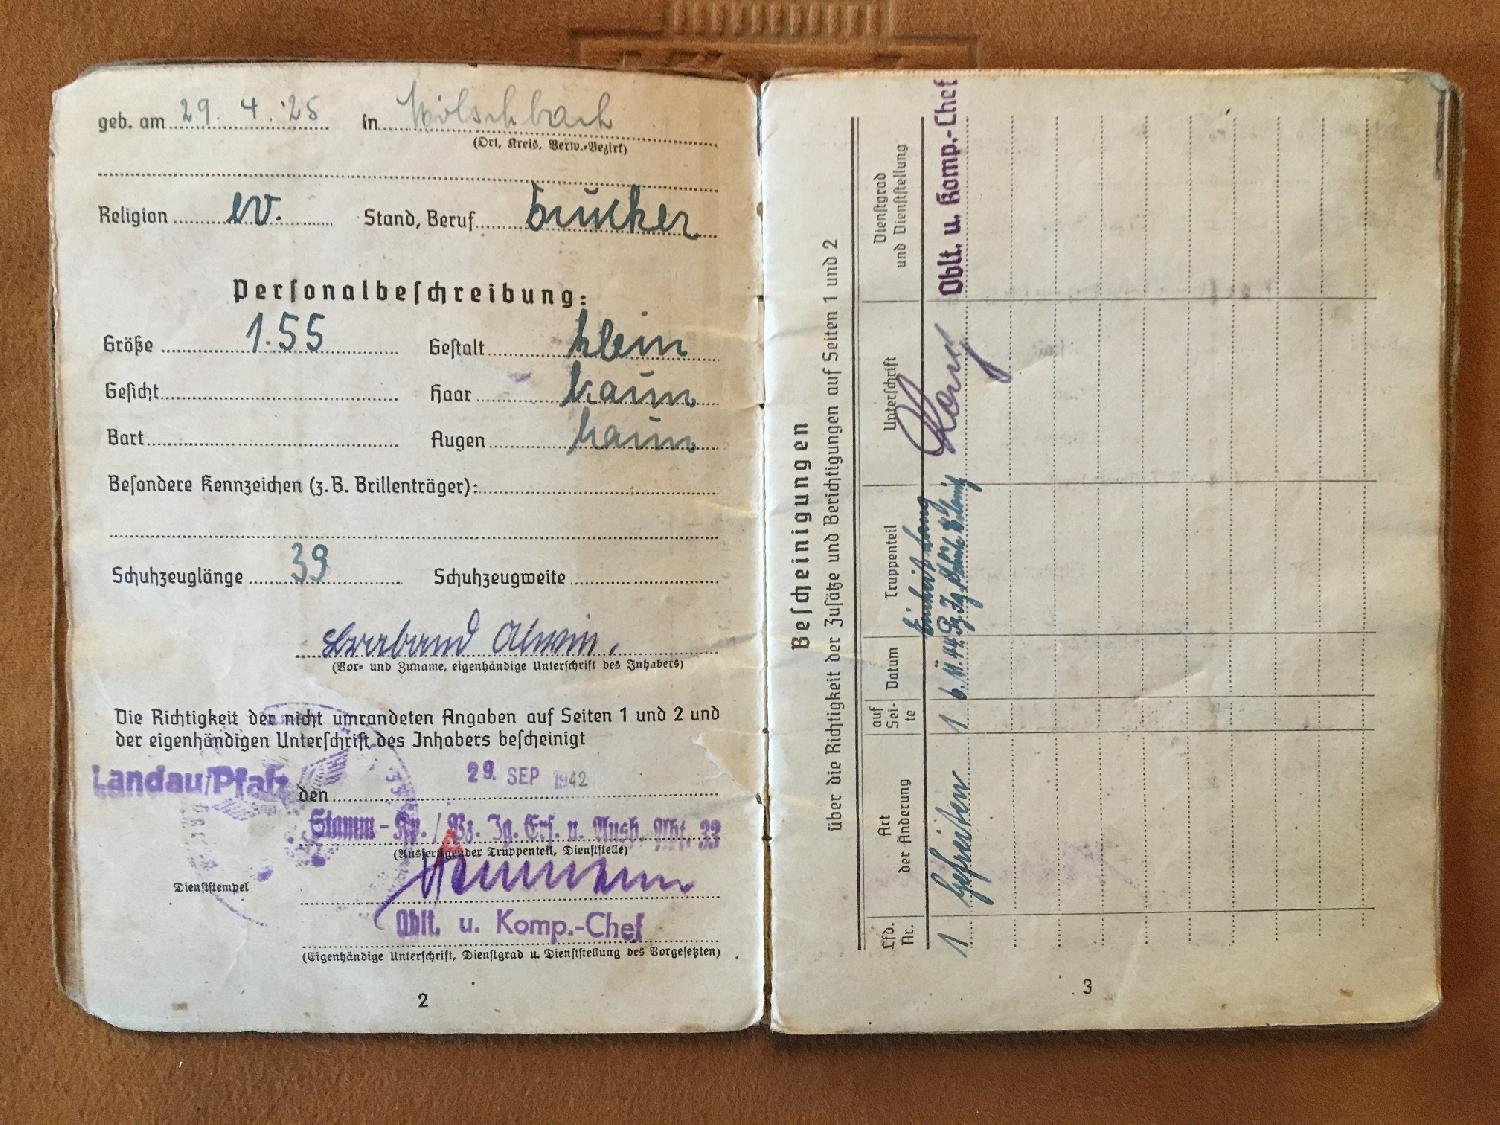 geb. am 29. 4. 25 in Mölschbach
(Ort, Kreis, Verw.-Bezirk)
Religion ev. Stand, Beruf
Personalbeschreibung:
Größe 1.55 Gestalt klein
Gesicht Haar braun
Bart Augen braun
Besondere Kennzeichen (z.B. Brillenträger):
Schuhzeuglänge 39 Schuhzeugweite
Braband Alwin.
(Vor- und Zuname, eigenhändige Unterschrift des Inhabers)
Die Richtigkeit der nicht umrandeten Angaben auf Seiten 1 und 2 und
der eigenhändigen Unterschrift des Inhabers bescheinigt
Landau/Pfalz den 29. SEP 1942
Stamm-Kp./Pz. Jg. Ers. u. Ausb. Abt. 33
(Ausfertigender Truppenteil, Dienststelle)
Dienststempel
Oblt. u. Komp.-Chef
(Eigenhändige Unterschrift, Dienstgrad u. Dienststellung des Vorgesetzten)
2
Bescheinigungen
über die Richtigkeit der Zusätze und Berichtigungen auf Seiten 1 und 2
Lfd. Nr. Art der Änderung auf Sei-te Datum Truppenteil Unterschrift Dienstgrad und Dienststellung
1 Gefreiten 1 6.11.44 Oblt. u. Komp.-Chef
3